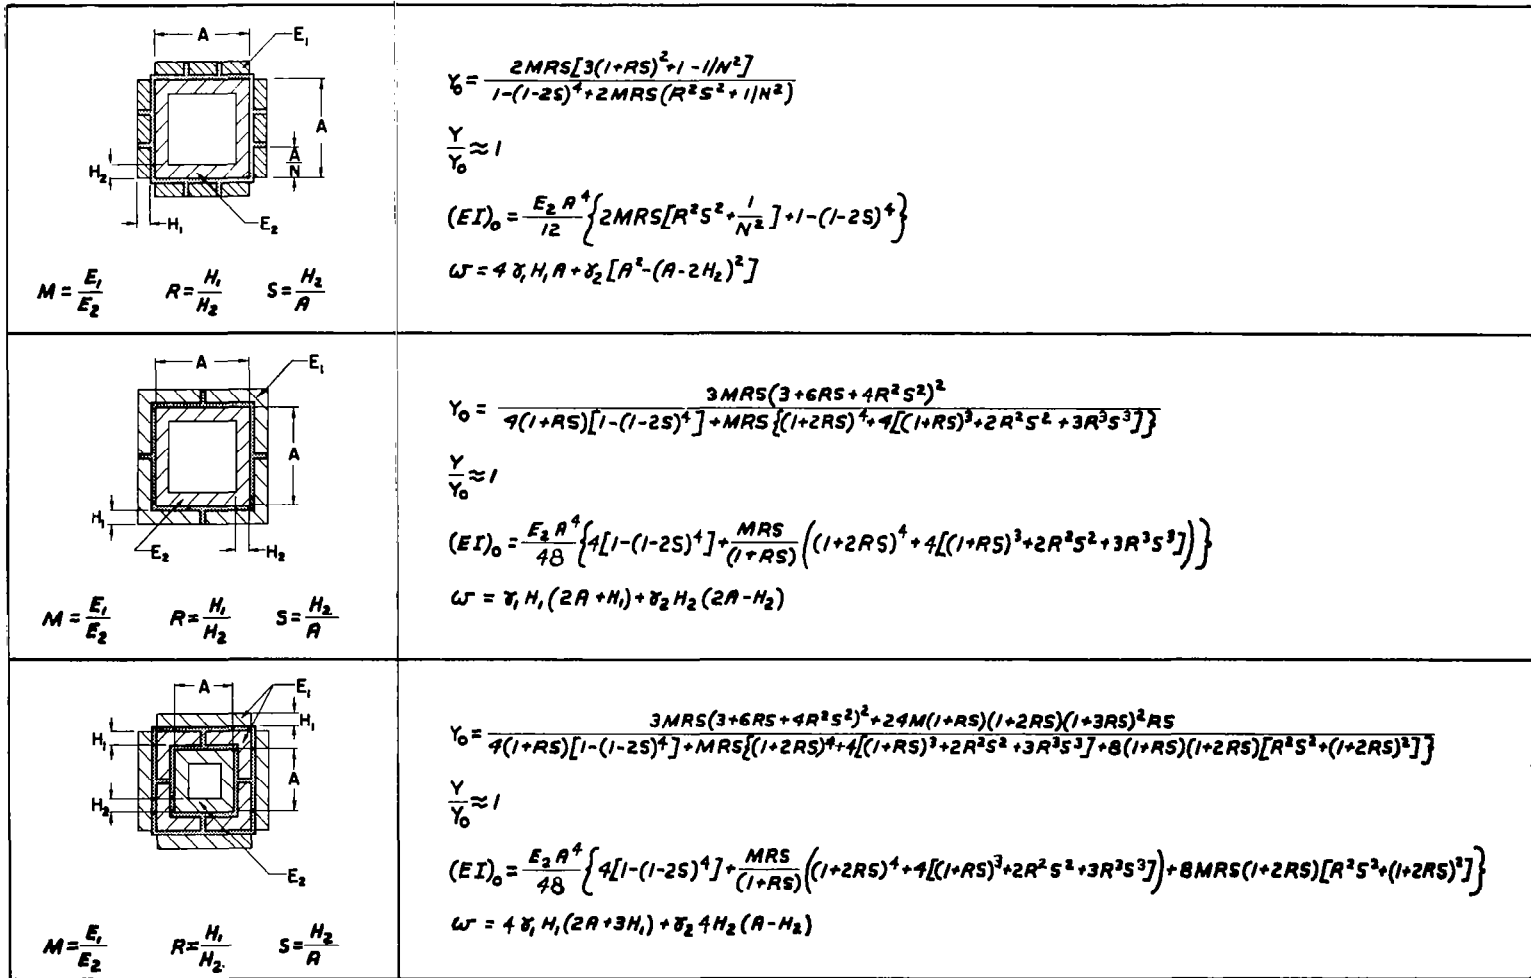 A
E₁
A
A/N
H₂
H₁
E₂
M = E₁/E₂ R = H₁/H₂ S = H₂/A
Y₀ = 2MRS[3(1+RS)²+1-1/N²] / 1-(1-2S)⁴+2MRS(R²S²+1/N²)
Y/Y₀ ≈ 1
(EI)₀ = E₂A⁴/12 {2MRS[R²S²+1/N²]+1-(1-2S)⁴}
ω = 4γ₁H₁A+γ₂[A²-(A-2H₂)²]
A
E₁
A
H₁
E₂
H₂
M = E₁/E₂ R = H₁/H₂ S = H₂/A
Y₀ = 3MRS(3+6RS+4R²S²)² / 4(1+RS)[1-(1-2S)⁴]+MRS{(1+2RS)⁴+4[(1+RS)³+2R²S²+3R³S³]}
Y/Y₀ ≈ 1
(EI)₀ = E₂A⁴/48 {4[1-(1-2S)⁴]+MRS/(1+RS) ((1+2RS)⁴+4[(1+RS)³+2R²S²+3R³S³])}
ω = γ₁H₁(2A+H₁)+γ₂H₂(2A-H₂)
A
E₁
H₁
H₁
A
H₂
E₂
M = E₁/E₂ R = H₁/H₂ S = H₂/A
Y₀ = 3MRS(3+6RS+4R²S²)²+24M(1+RS)(1+2RS)(1+3RS)²RS / 4(1+RS)[1-(1-2S)⁴]+MRS{(1+2RS)⁴+4[(1+RS)³+2R²S²+3R³S³]+8(1+RS)(1+2RS)[R²S²+(1+2RS)²]}
Y/Y₀ ≈ 1
(EI)₀ = E₂A⁴/48 {4[1-(1-2S)⁴]+MRS/(1+RS) ((1+2RS)⁴+4[(1+RS)³+2R²S²+3R³S³])+8MRS(1+2RS)[R²S²+(1+2RS)²]}
ω = 4γ₁H₁(2A+3H₁)+γ₂4H₂(A-H₂)